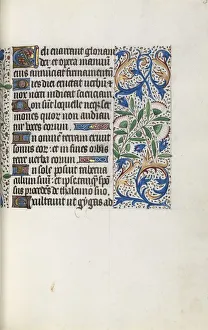 Celi enarrant gloriam
dei et opera manuu
eius annuncat firmamentu
Dies diei eructat verbu et
nox nocti indicat scienciam
Non sunt loquelle necz ser
mones quoz non audian
tur voces eorum
In omnem terram exiuit
sonus eoz et in fines orbis
terre verba eorum
In sole posuit taberna
culum suu et ipse tanqz spo
sus procedes de thalamo suo
Exultauit ut gygas ad